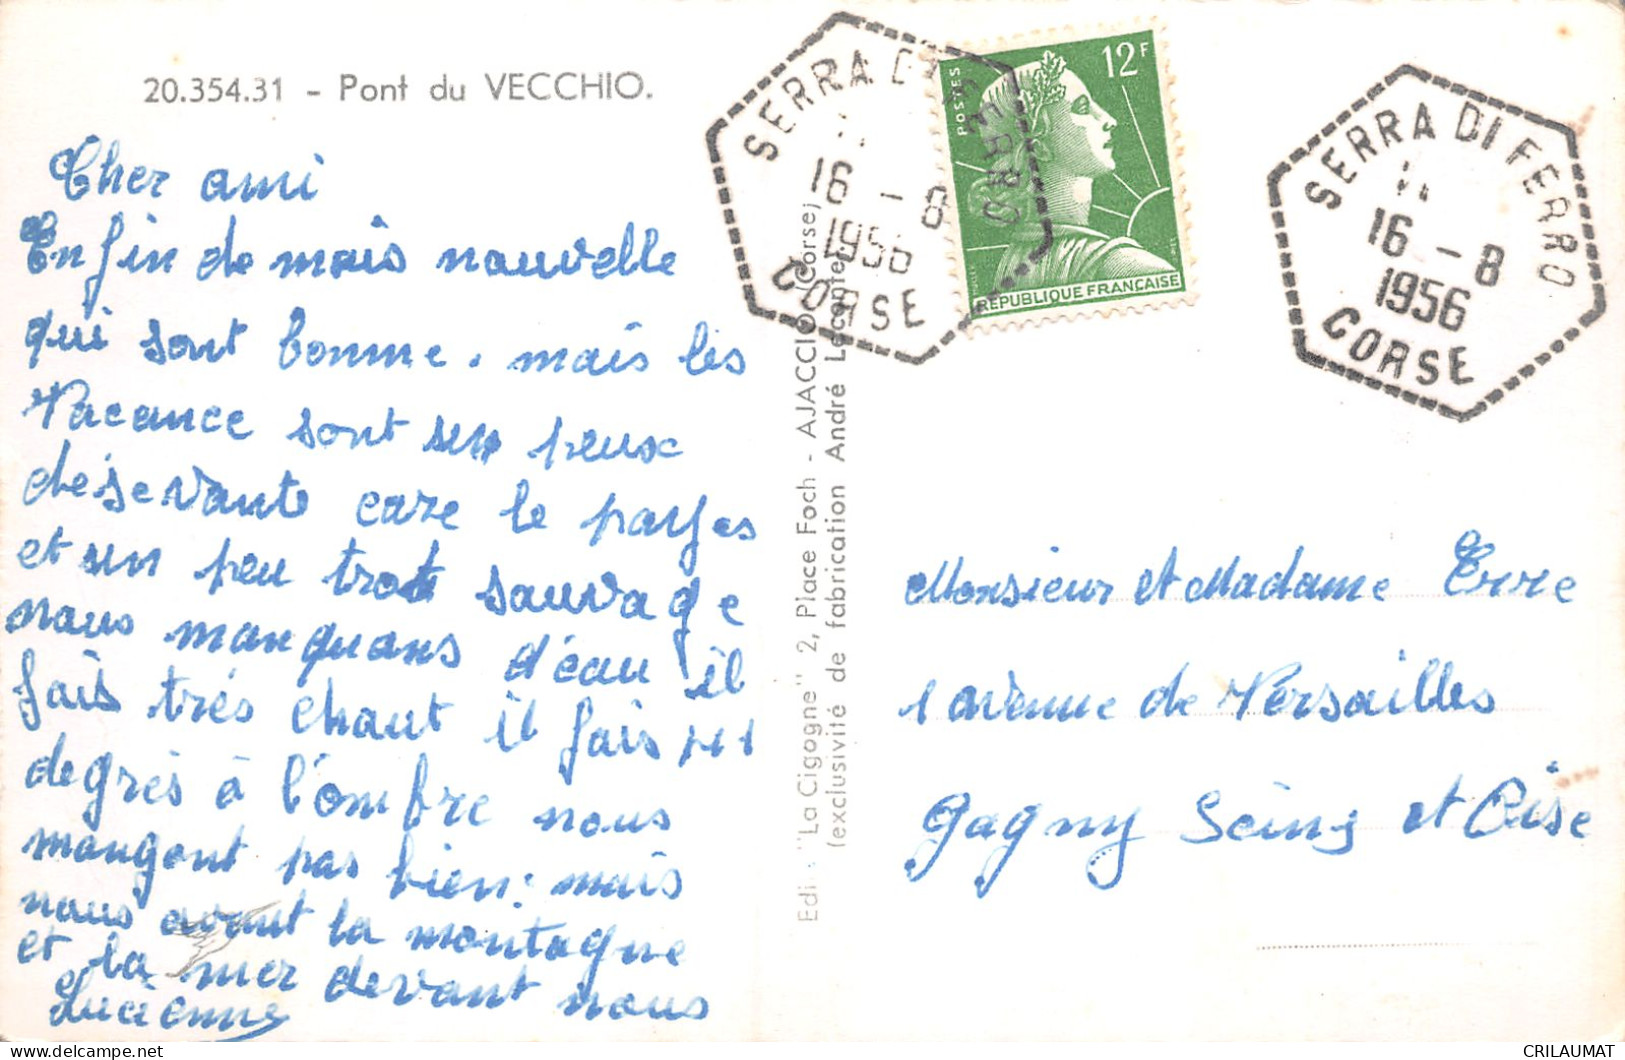 20.354.31 - Pont du VECCHIO.
Cher ami
Enfin de mais nouvelle
qui sont bonne. mais les
Vacance sont un peux
désevante care le payses
et un peu trot sauvage
nous manquons d'eau il
fais très chaut il fais
degrès à l'ombre nous
mangont pas bien: mais
nous avont la montagne
et la mer devant nous
Lucienne
Edi "La Cigogne" 2, Place Foch - AJACCIO (Corse)
(exclusivité de fabrication André Leconte)
SERRA DI FERRO
16 - 8
1956
CORSE
POSTES
12F
RÉPUBLIQUE FRANÇAISE
SERRA DI FERRO
16 - 8
1956
CORSE
Monsieur et Madame Erre
1 avenue de Versailles
Gagny Seine et Oise
CRILAUMAT